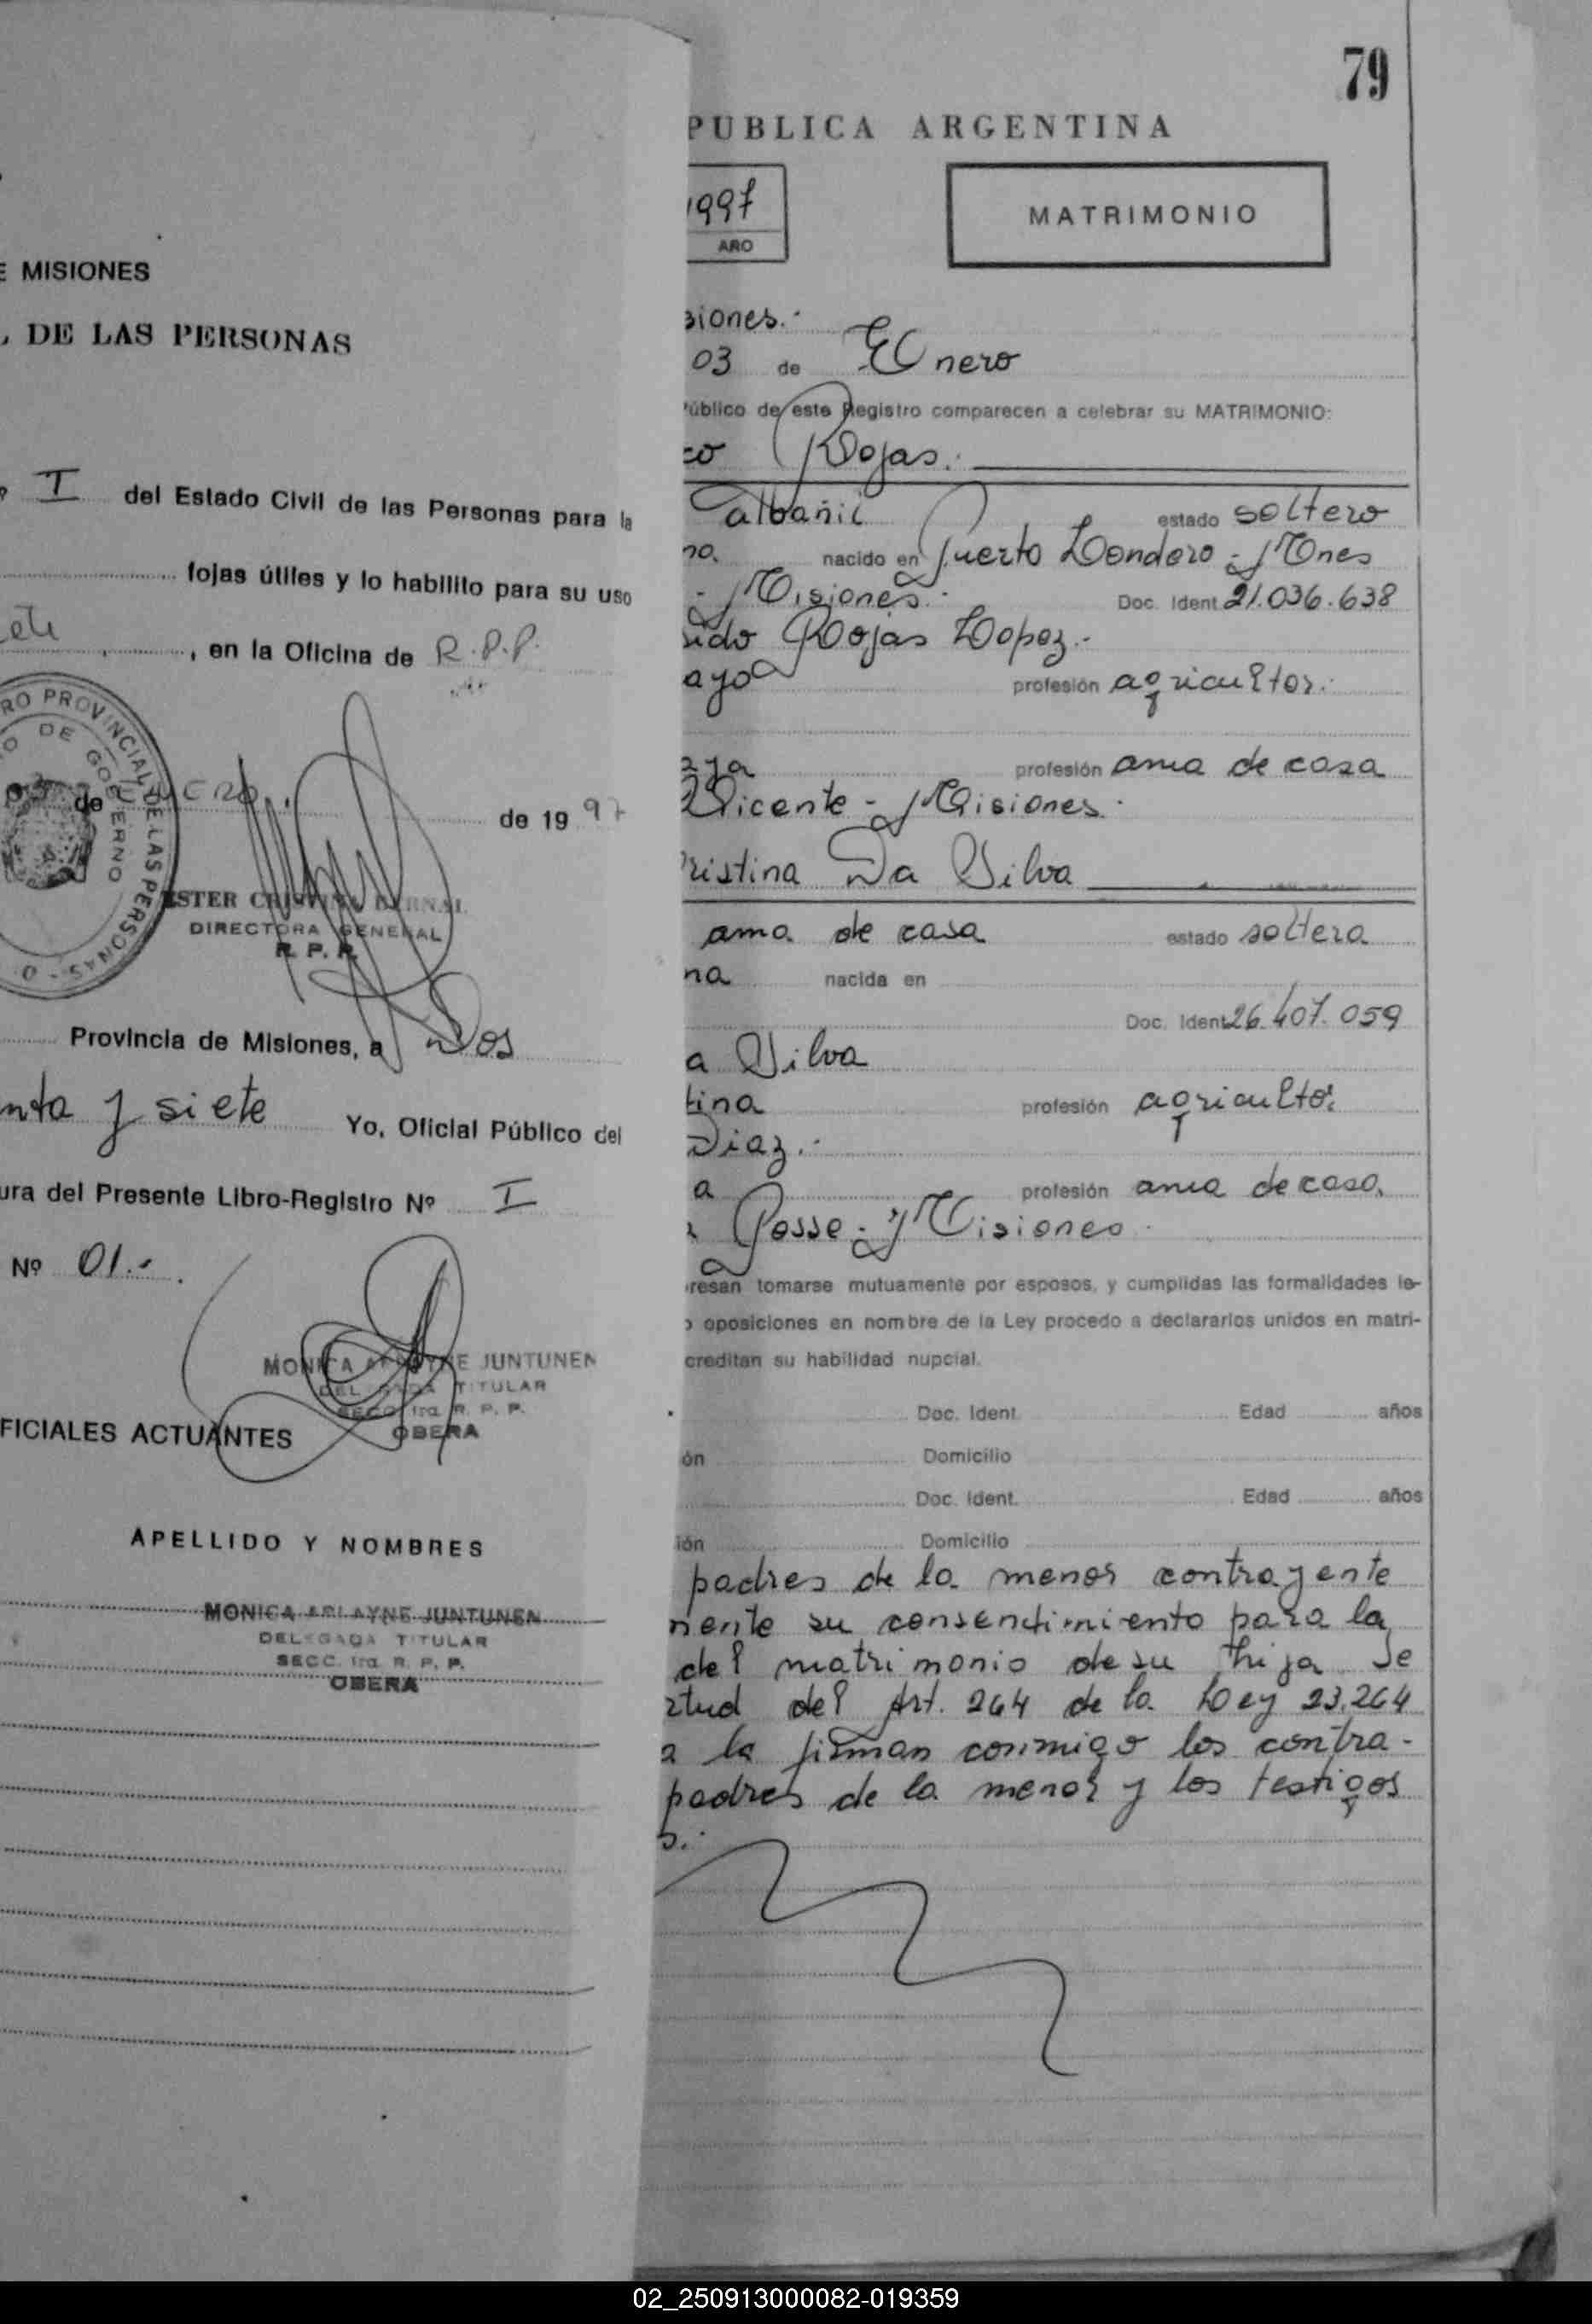 E MISIONES
, DE LAS PERSONAS
I del Estado Civil de las Personas para la
fojas útiles y lo habilito para su uso
, en la Oficina de R.P.P.
RO PROVINCIAL DE LAS PERSONAS
DE GOBIERNO
de ENERO de 1997
ESTER CRISTINA BERNAL
DIRECTORA GENERAL
R. P. P.
Provincia de Misiones, a Dos
nta y siete Yo, Oficial Público del
ura del Presente Libro-Registro Nº I
Nº 01.-
MONICA ARLAYNE JUNTUNEN
DELEGADA TITULAR
SECC. 1ra. R. P. P.
OBERA
FICIALES ACTUANTES
APELLIDO Y NOMBRES
MONICA ARLAYNE JUNTUNEN
DELEGADA TITULAR
SECC. 1ra. R. P. P.
OBERA
79
PUBLICA ARGENTINA
1997
AÑO
MATRIMONIO
siones.-
03 de Enero
Público de este Registro comparecen a celebrar su MATRIMONIO:
co Rojas.
albañil estado soltero
no. nacido en Puerto Londero - Mnes
- Misiones.- Doc. Ident. 21.036.638
sido Rojas Lopez.-
ayo profesión agricultor.
aya profesión ama de casa
Vicente - Misiones.
ristina Da Silva
ama de casa estado soltera
na nacida en
Doc. Ident. 26.407.059
a Silva
tina profesión agricultor
Diaz.-
a profesión ama de casa.
Posse - Misiones.
resan tomarse mutuamente por esposos, y cumplidas las formalidades le-
o oposiciones en nombre de la Ley procedo a declararlos unidos en matri-
creditan su habilidad nupcial.
Doc. Ident. Edad años
ón Domicilio
Doc. Ident. Edad años
ión Domicilio
padres de la menor contrayente
mente su consentimiento para la
del matrimonio de su hija Se
rtud del Art. 264 de la Ley 23.264
a la firman conmigo los contra-
padres de la menor y los testigos
s.-
02_250913000082-019359